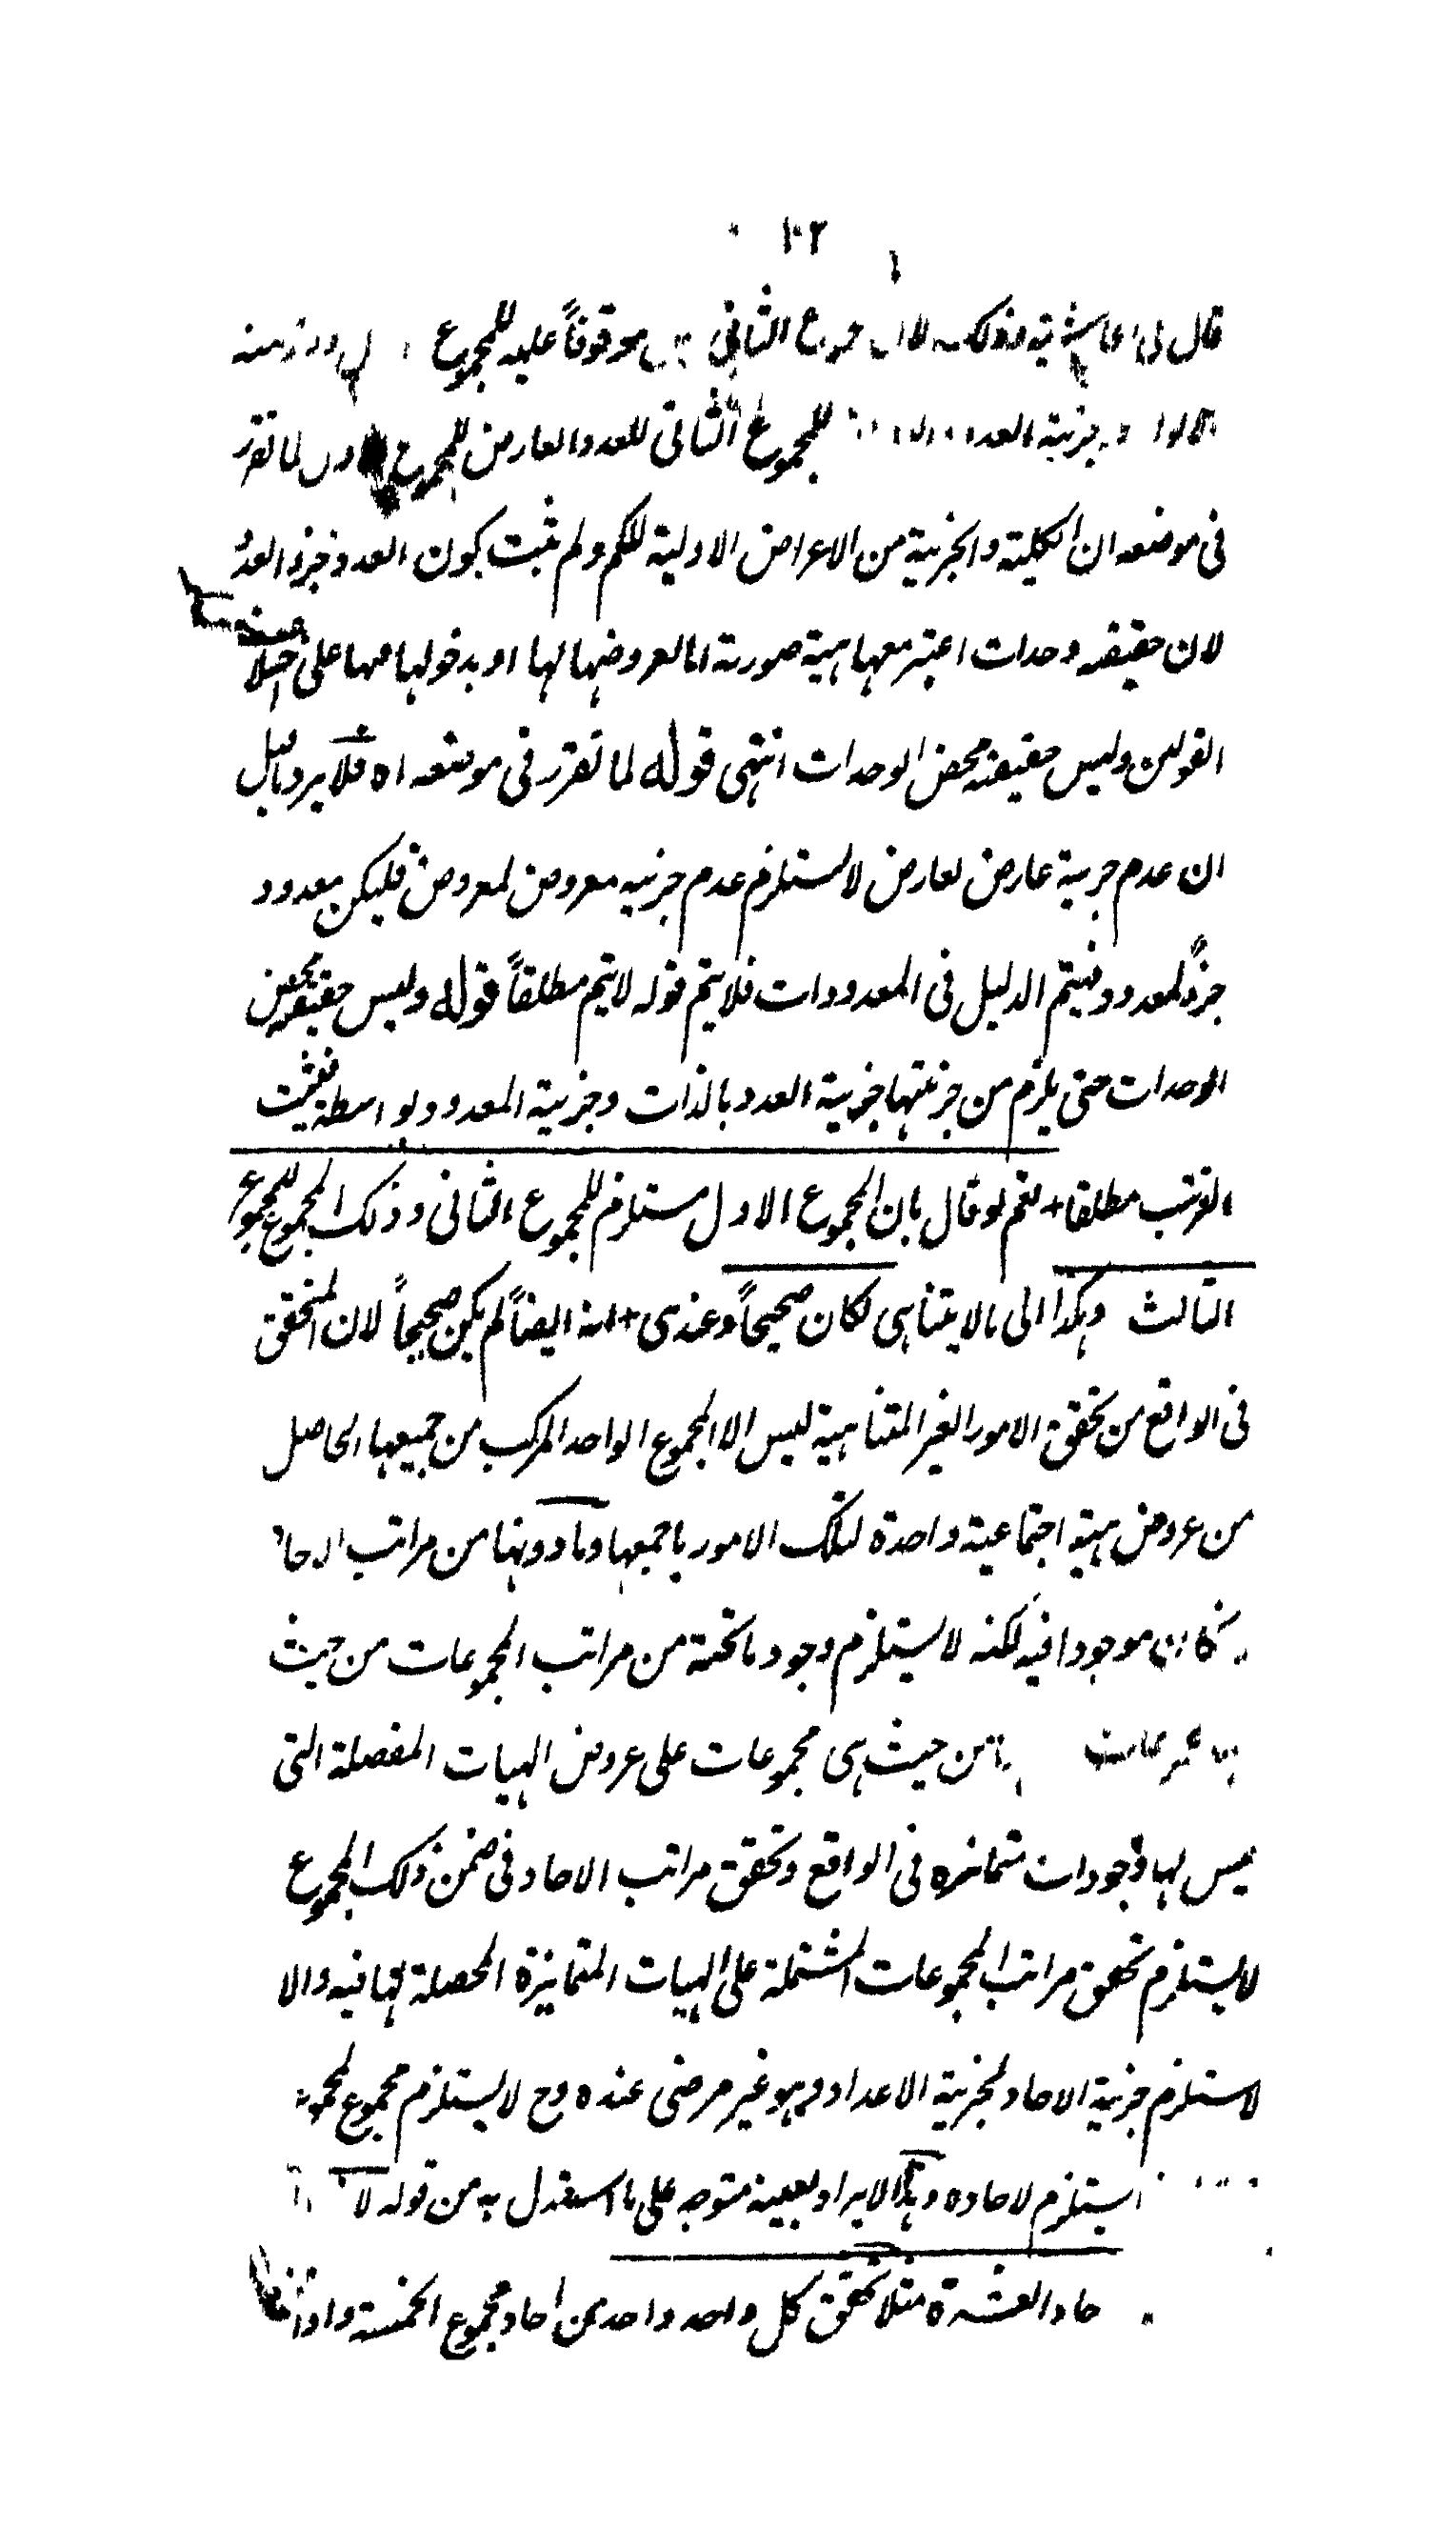 ١٠٢
قال فى الحاشية وذلك لان المجموع الثانى ليس موقوفاً عليه للمجموع
جزئية العدد للمجموع الثانى للعدد العارض للمجموع الاول لما تقرر
فى موضعه ان الكلية والجزئية من الاعراض الاولية للكم ولم يثبت كون العدد جزء العدد
لان حقيقته وحدات اعتبر معها هيئة صورية اما لعروضها لها او بدخولها فيها على اختلاف
القولين وليس حقيقته محض الوحدات انتهى قوله لما تقرر فى موضعه اه فلا يرد ما قيل
ان عدم جزئية عارض لعارض لا يستلزم عدم جزئية معروض لمعروض فليكن معدود
جزءً لمعدود فيتم الدليل فى المعدودات فلا يتم قوله لا يتم مطلقاً قوله وليس حقيقته محض
الوحدات حتى يلزم من جزئيتها جزئية العدد بالذات وجزئية المعدود بواسطة فيثبت
الترتب مطلقا + نعم لو قال بان المجموع الاول مستلزم للمجموع الثانى وذلك المجموع للمجموع
الثالث وهكذا الى ما لا يتناهى لكان صحيحاً وعندى + انه ايضاً لم يكن صحيحاً لان المتحقق
فى الواقع من تحقق الامور الغير المتناهية ليس الا المجموع الواحد المركب من جميعها الحاصل
من عروض هيئة اجتماعية واحدة لتلك الامور باجمعها وما دونها من مراتب الاحاد
كان موجودا فيه لكنه لا يستلزم وجود ما تحته من مراتب المجموعات من حيث
من حيث هى مجموعات على عروض الهيات المفصلة التى
ليس لها وجودات متمائزه فى الواقع وتحقق مراتب الاحاد فى ضمن ذلك المجموع
لا يستلزم تحقق مراتب المجموعات المشتملة على الهيات المتمايزة المحصلة لها فيه والا
لاستلزم جزئية الاحاد لجزئية الاعداد وهو غير مرضى عنده وح لا يستلزم مجموع لمجموع
يستلزم لاحاده وهذا الايراد بعينه متوجه على ما استدل به من قوله لا
حاد العشرة مثلا تحقق كل واحد واحد من احاد مجموع الخمسة واذا